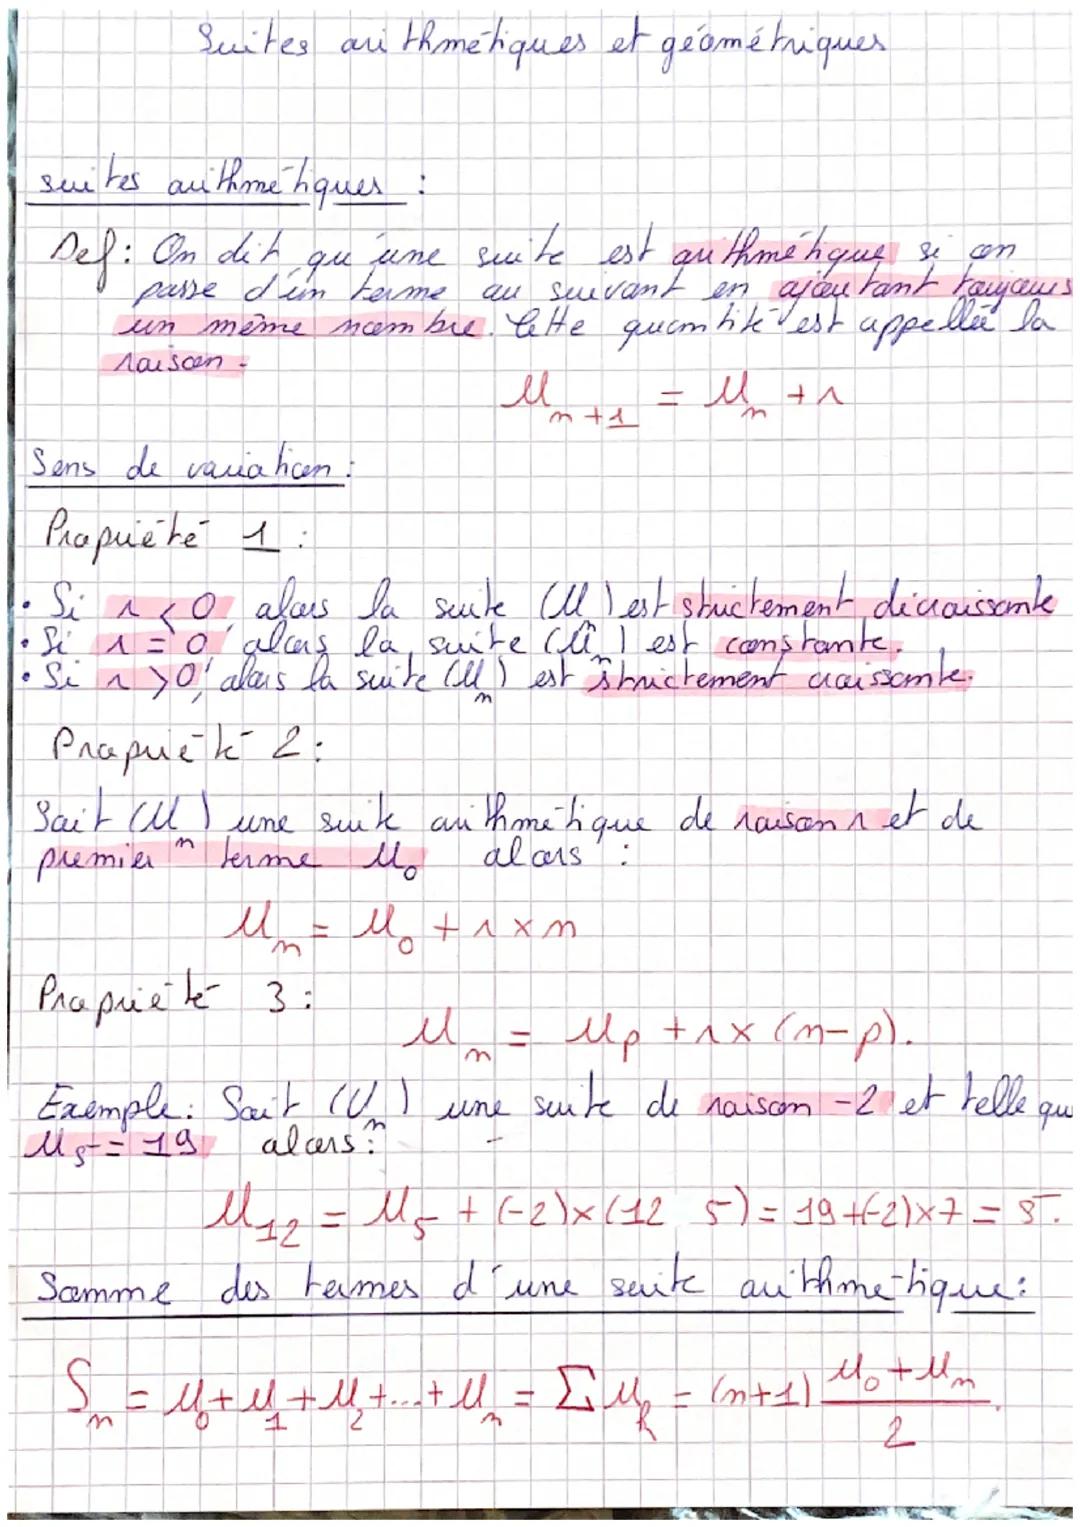 Suites arithmétiques et géométriques
suites arithmétiques :
Def: On dit qu'une suite est arithmétique si on
passe d'un terme au suivant en ajoutant toujours
un même nombre. Cette quantité est appellée la
raison.
U_{n+1} = U_n + r
Sens de variation :
Propriété 1 :
• Si r < 0, alors la suite (U_n) est strictement décroissante
• Si r = 0, alors la suite (U_n) est constante.
• Si r > 0, alors la suite (U_n) est strictement croissante.
Propriété 2 :
Soit (U_n) une suite arithmétique de raison r et de
premier terme U_0 alors :
U_n = U_0 + r × n
Propriété 3 :
U_n = U_p + r × (n-p).
Exemple: Soit (U_n) une suite de raison -2 et telle qu
U_5 = 19 alors :
U_12 = U_5 + (-2) × (12 5) = 19 + (-2) × 7 = 5.
Somme des termes d'une suite arithmétique :
S_n = U_0 + U_1 + U_2 + ... + U_n = Σ U_k = (n+1) (U_0 + U_n)/2.